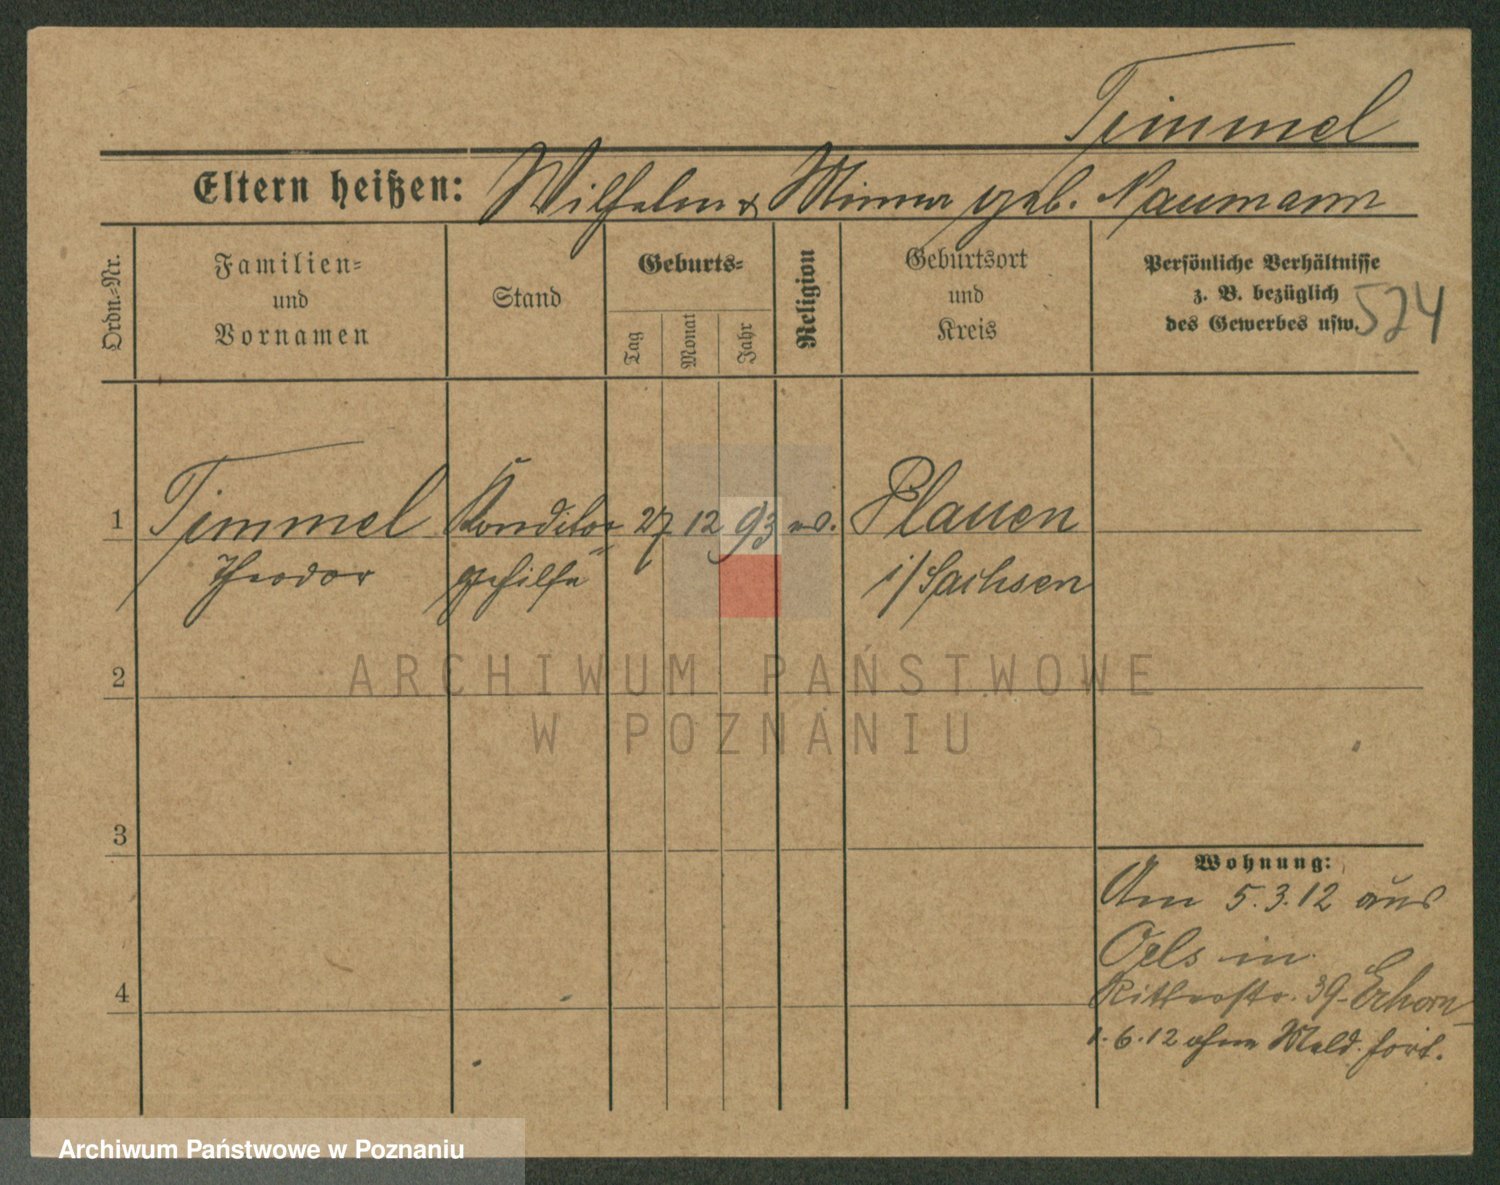 Timmel
Eltern heißen: Wilhelm & Minna geb. Naumann
Ordn.-Nr.
Familien-
und
Vornamen
Stand
Geburts-
Tag
Monat
Jahr
Religion
Geburtsort
und
Kreis
Persönliche Verhältnisse
z. B. bezüglich
des Gewerbes usw.
524
1 Timmel Konditor 27 12 93 ev. Plauen
Theodor gehilfe i/Sachsen
2
3
4
Wohnung:
Am 5.3.12 aus
Oels in
Ritterstr. 39 - Erhorn
1.6.12 ohne Meld. fort.
ARCHIWUM PAŃSTWOWE
W POZNANIU
Archiwum Państwowe w Poznaniu